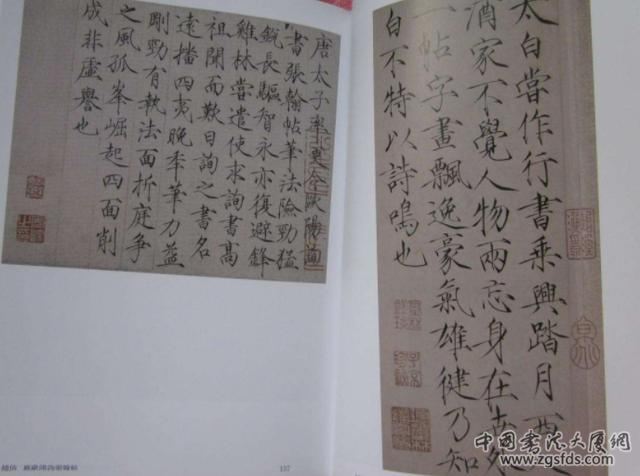 唐太子率更令歐陽詢
書張翰帖筆法險勁猛
銳長驅智永亦復避鋒
雞林嘗遣使求詢書高
祖聞而歎曰詢之書名
遠播四夷晚年筆力益
剛勁有執法面折庭爭
之風孤峯崛起四面削
成非虛譽也
太白嘗作行書乘興踏月西
酒家不覺人物兩忘身在世
一帖字畫飄逸豪氣雄健乃知
白不特以詩鳴也
中國書法大厦網
www.zgsfds.com